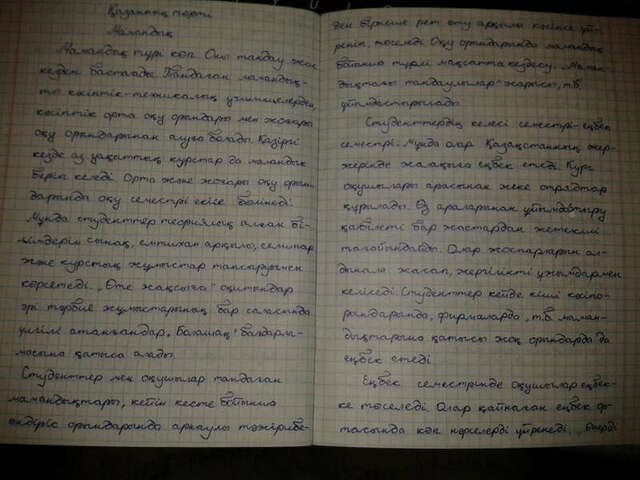 Мамандық
Мамандық түрі көп. Оны таңдау жас
кезден басталады. Таңдаған мамандық-
ты кәсіптік-техникалық училищелерден,
кәсіптік орта оқу орындары мен жоғары
оқу орындарынан алуға болады. Қазіргі
кезде аз уақыттық курстар да мамандық
беріп келеді. Орта және жоғары оқу орын-
дарында оқу семестрі екіге бөлінеді.
Мұнда студенттер теориялық алған бі-
лімдерін сынақ, емтихан арқылы, семинар
және курстық жұмыстар тапсыруымен
көрсетеді. „Өте жақсыға" оқитындар
әрі тәрбие жұмыстарының бар саласында
үлгілі атанғандар „Болашақ" бағдарла-
масына қатыса алады.
Студенттер мен оқушылар таңдаған
мамандықтары, кейін кесте бойынша
өндіріс орындарында арнаулы тәжірибе-
ден бірнеше рет өту арқылы кәсіпке үй-
реніп, төселеді. Оқу орындарында мамандық
бойынша түрлі мақсатта кездесу, „Маман-
дықтағы таңдаулылар" жарысы, т.б.
ұйымдастырылады.
Студенттердің келесі семестрі - еңбек
семестрі. Мұнда олар Қазақстанның жер-
жерінде жалақыға еңбек етеді. Курс
оқушылары арасынан жеке отрядтар
құрылады. Өз араларынан ұйымдастыру
қабілеті бар жастардан жетекші
тағайындайды. Олар жоспарларын ал-
дынала жасап, жергілікті ұжымдармен
келіседі. Студенттер кейде кіші кәсіпо-
рындарында, фирмаларда, т.б. маман-
дықтарына қатысы жоқ орындарда да
еңбек етеді.
Еңбек семестрінде оқушылар еңбек-
ке төселеді. Олар қайнаған еңбек ор-
тасында көп нәрселерді үйренеді.